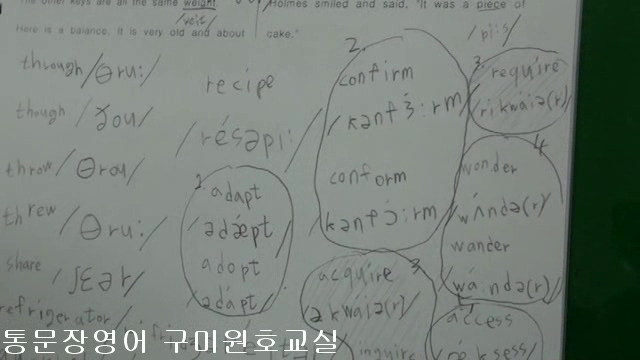 The other keys are all the same weight.
/veis/
Here is a balance. It is very old and about
Holmes smiled and said, "It was a piece of
cake."
/pi:s/
through /θru:/
though /ðou/
throw /θrou/
threw /θru:/
share /ʃɛər/
refrigerator /
recipe
/résəpi:/
1. adapt
/ədǽpt/
adopt
/ədápt/
2. confirm
/kənfɜ́:rm/
conform
/kənfɔ́:rm/
3. require
/rikwáiə(r)/
acquire 3
əkwaiə(r)/
inquire
4
wonder
wʌ́ndə(r)/
wander
/wá:ndə(r)/
access
통문장영어 구미원호교실